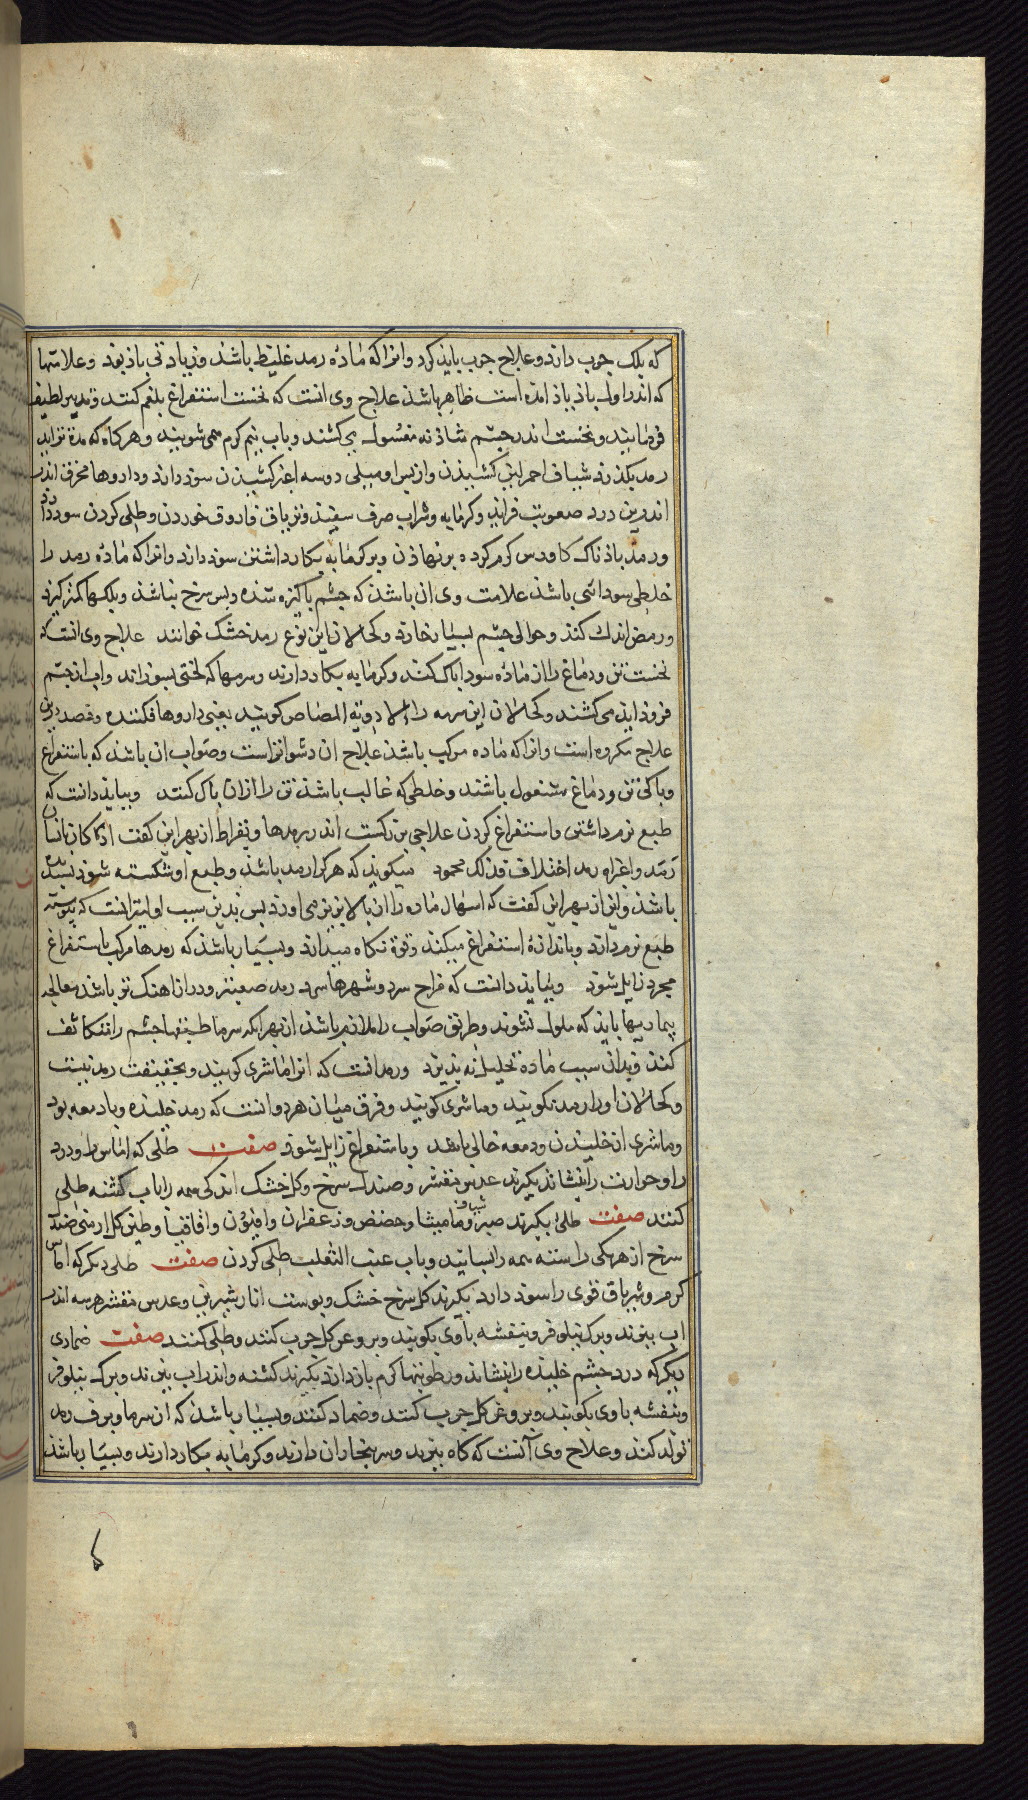 که پلک جرب دارد و علاج جرب باید کرد و انرا که ماده رمد غلیظ باشد و زیادتی باذ بود و علامتها
که اندر اول باذ یاذ امده است ظاهر باشد علاج وی انست که نخست استفراغ بلغم کنند و تدبیر لطیف
فرمایند و نخست اندر چشم شاذنه مغسول می کشند و باب نیم کرم همی شویند و هرکاه که مدة
رمد بکذرد شیاف احمر لین کشیذن و از پس او میلی دو سه اغبر کشیذن سوذ دارد و داروها مخرف اندر
اندرین درد صعوبت فزاید و کرمابه و شراب صرف سفید و تریاق فاروق خوردن و طلی کردن سوذ دارد
و رمد باذناک کاورس کرم کرده برنهاذن و بر کرمابه بکار داشتن سوذ دارد و انرا که ماده رمد را
خلطی سودائی باشد علامت وی ان باشد که چشم پاکیزه شده و بس سرخ نباشد و پلکها
و رمص اندک کند و حوالی چشم بسیار خارد و کحالان این نوع رمد خشک خوانند علاج وی انست که
نخست تن و دماغ را از ماده سودا پاک کنند و کرمابه بکار دارند و سرمها که لختی بسوزاند و اب از چشم
فروذ اید می کشند و کحالان این سرمه را الادویه المضاض کویند یعنی داروها کننده و فصد درین
علاج مکروه است و انرا که ماده مرکب باشد علاج ان دشوارتر است و صواب ان باشد که باستفراغ
و پاکی تن و دماغ مشغول باشند و خلطی که غالب باشد تن را ازان پاک کنند و بباید دانست که
طبع نرم داشتن و استفراغ کردن علاجی بزرکست اندر رمدها و بقراط از بهر این کفت اذا کان بانسان
رمد و اعتراه اختلاف فذلک محمود میکویذ که هر کرا رمد باشد و طبع او شکسته شوذ پسندیده
باشد و این از بهر این کفت که اسهال ماده را از بالا بزیر می اورد پس بدین سبب اولیتر انست که پیوسته
طبع نرم دارد و باندازه استفراغ میکند و قوة نکاه میدارد و بسیار باشد که رمدها مرکب باستفراغ
مجرد زایل شوذ و بباید دانست که مزاج سرد و شهرها سرد رمد صعبتر و دراز اهنک تر باشد معالجه
بیماریها باید که ملول نشوند و طریق صواب را ملازم باشند از بهر انکه سرما طبقها چشم را متکاثف
کند و بدان سبب ماده تحلیل نپذیرد و رمد انست که انرا ماشری کویند و بحقیقت رمد نیست
و کحالان او را رمد نکویند و ماشری کویند و فرق میان هردو انست که رمد خلیده و با دمعه بود
و ماشری از خلیدن و دمعه خالی باشد و باستفراغ زایل شوذ صفت طلی که اماس را و درد
را و حرارت را بنشاند بکیرند عدس مقشر و صندل سرخ و کل خشک اندکی همه را باب کشنه طلی
کنند صفت طلی بکیرند صبر و مامیثا و حضض و زعفران و افیون و اقاقیا و طین کل ارمنی و صندل
سرخ از هریکی راسته همه را بسایند و باب عنب الثعلب طلی کردن صفت طلی دیکر که اماس
کرم و ضربان قوی را سوذ دارد بکیرند کل سرخ خشک و پوست انار شیرین و عدس مقشر هرسه اندر
اب بپزند و برک نیلوفر و بنفشه باوی بکوبند و بروغن کل چرب کنند و طلی کنند صفت ضمادی
دیکر که درد چشم خلیده را بنشاند و رطوبتها کرم بازدارد بکیرند کشنه و اندر اب بپزند و برک نیلوفر
و بنفشه باوی بکوبند و بروغن کل چرب کنند و ضماد کنند و بسیار باشد که از سرما و برف رمد
تولد کند و علاج وی آنست که کاه بپزند و سر ببخار ان دارند و کرمابه بکار دارند و بسیار باشد